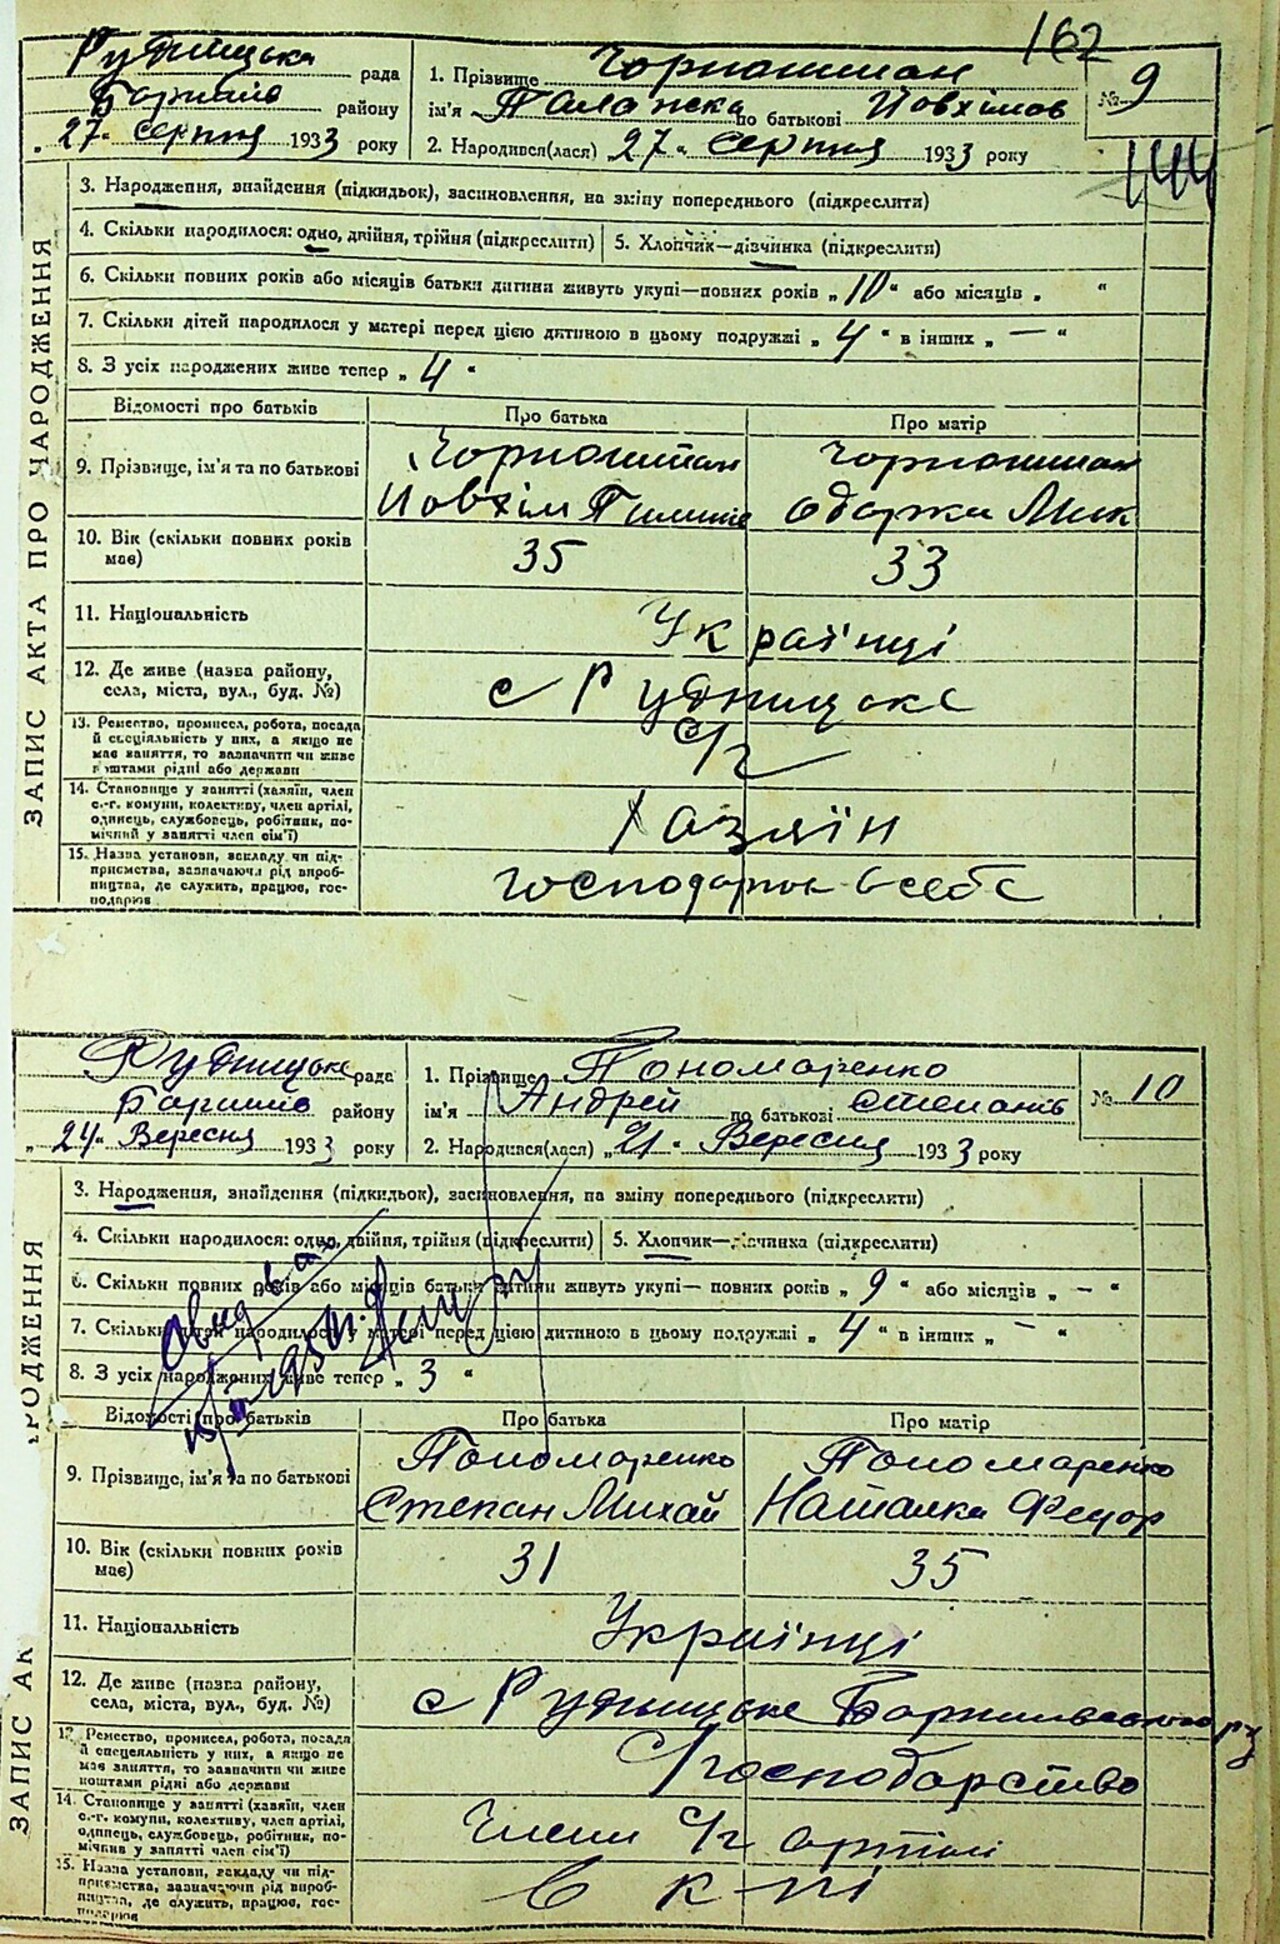 162
Рудницька рада
Баришів району
„27“ серпня 1933 року
1. Прізвище Чорноштан
ім'я Палажка по батькові Йовхімов
2. Народився(лася) 27 „ серпня 1933 року
№ 9
144
ЗАПИС АКТА ПРО НАРОДЖЕННЯ
3. Народження, знайдення (підкидьок), засиновлення, на зміну попереднього (підкреслити)
4. Скільки народилося: одно, двійня, трійня (підкреслити) 5. Хлопчик—дівчинка (підкреслити)
6. Скільки повних років або місяців батьки дитини живуть укупі—повних років „ 10 “ або місяців „ “
7. Скільки дітей народилося у матері перед цією дитиною в цьому подружжі „ 4 “ в інших „ — “
8. З усіх народжених живе тепер „ 4 “
Відомості про батьків Про батька Про матір
9. Прізвище, ім'я та по батькові
Чорноштан Чорноштан
Йовхім Одарка Мик
10. Вік (скільки повних років має) 35 33
11. Національність Українці
12. Де живе (назва району,
села, міста, вул., буд. №) с Рудницьке
13. Ремество, промисел, робота, посада
й спеціяльність у них, а якщо не
має заняття, то зазначити чи живе
коштами рідні або держави
с/г
14. Становище у занятті (хазяїн, член
с.-г. комуни, колективу, член артілі,
одинець, службовець, робітник, по-
мічний у занятті член сім'ї)
Хазяїн
15. Назва установи, закладу чи під-
приємства, зазначаючи рід вироб-
ництва, де служить, працює, гос-
подарює
в себе
Рудницьке рада
Баришів району
„24“ Вересня 1933 року
1. Прізвище Пономаренко
ім'я Андрей по батькові Степанів
2. Народився(лася) „21“ Вересня 1933 року
№ 10
ЗАПИС АК РОДЖЕННЯ
3. Народження, знайдення (підкидьок), засиновлення, на зміну попереднього (підкреслити)
4. Скільки народилося: одно, двійня, трійня (підкреслити) 5. Хлопчик—дівчинка (підкреслити)
6. Скільки повних років або місяців батьки дитини живуть укупі— повних років „ 9 “ або місяців „ – “
7. Скільки дітей народилося у матері перед цією дитиною в цьому подружжі „ 4 “ в інших „ — “
8. З усіх народжених живе тепер „ 3 “
Відомості про батьків Про батька Про матір
9. Прізвище, ім'я та по батькові
Пономаренко Пономаренко
Степан Михай Наталка Федор
10. Вік (скільки повних років має) 31 35
11. Національність Українці
12. Де живе (назва району,
села, міста, вул., буд. №) с Рудницьке Баришевського р
13. Ремество, промисел, робота, посада
й спецеяльність у них, а якщо не
має заняття, то зазначити чи живе
коштами рідні або держави
С/господарство
14. Становище у занятті (хазяїн, член
с.-г. комуни, колективу, член артілі,
одинець, службовець, робітник, по-
мічник у занятті член сім'ї)
Члени с/г артілі
15. Назва установи, закладу чи під-
приємства, зазначаючи рід вироб-
ництва, де служить, працює, гос-
подарює